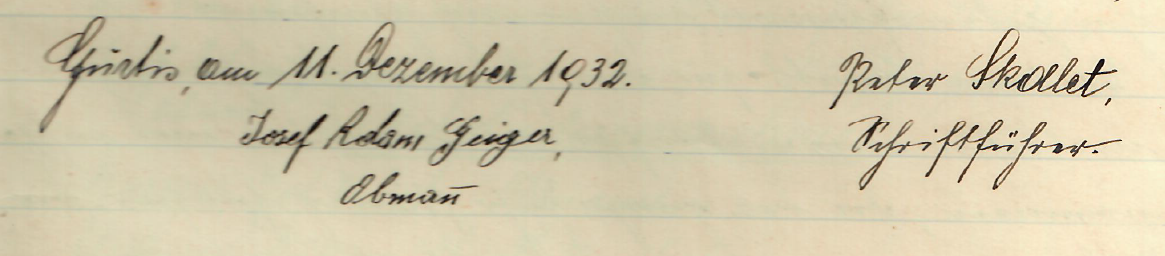 Gurtis, am 11. Dezember 1932.
Josef Adam Geiger,
Obmann̄
Peter Skalet,
Schriftführer.